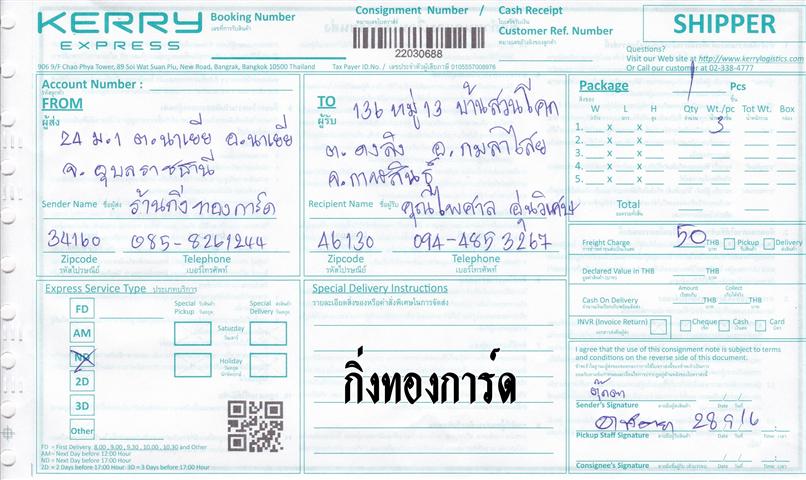 KERRY
EXPRESS
Booking Number
เลขที่การรับสินค้า
Consignment Number
หมายเลขใบตราส่ง
22030688
Cash Receipt
ใบเสร็จรับเงิน
Customer Ref. Number
หมายเลขอ้างอิงของลูกค้า
SHIPPER
Questions?
Visit our Web site at http://www.kerrylogistics.com
Or Call our customer at 02-338-4777
906 9/F Chao Phya Tower, 89 Soi Wat Suan Plu, New Road, Bangrak, Bangkok 10500 Thailand
Tax Payer ID.No. / เลขประจำตัวผู้เสียภาษี 0105557008976
Account Number :
รหัสลูกค้า
FROM
ผู้ส่ง
24 ม.1 ต.นาเยีย อ.นาเยีย
จ.อุบลราชธานี
Sender Name ชื่อผู้ส่ง ร้านกิ่งทองการ์ด
34160 085-8261244
Zipcode Telephone
รหัสไปรษณีย์ เบอร์โทรศัพท์
TO
ผู้รับ
136 หมู่ 13 บ้านสวนโคก
ต.ดงลิง อ.กมลาไสย
จ.กาฬสินธุ์
Recipient Name ชื่อผู้รับ คุณไพศาล อุ่นวิเศษ
46130 094-485 3267
Zipcode Telephone
รหัสไปรษณีย์ เบอร์โทรศัพท์
Package 1 Pcs
W L H Qty Wt./pc Tot Wt. Box
1. x x 3
2. x x
3. x x
4. x x
5. x x
Total
Freight Charge 50 THB Pickup Delivery
Declared Value in THB
Amount Collect
Cash On Delivery THB THB
INVR (Invoice Return) Cheque Cash Card
I agree that the use of this consignment note is subject to terms
and conditions on the reverse side of this document.
ตุ๊กตา
Sender's Signature Date วันที่
28 9/6
Pickup Staff Signature Date วันที่ Time เวลา
Consignee's Signature Date วันที่ Time เวลา
Express Service Type ประเภทบริการ
FD
AM
ND
2D
3D
Other
Special Pickup
Special Delivery
Saturday
วันเสาร์
Holiday
วันหยุด
FD = First Delivery 8.00 , 9.00 , 9.30 , 10.00 , 10.30 and Other
AM= Next Day before 12:00 Hour
ND = Next Day before 17:00 Hour
2D = 2 Days before 17:00 Hour 3D = 3 Days before 17:00 Hour
Special Delivery Instructions
รายละเอียดสิ่งของหรือคำสั่งพิเศษในการจัดส่ง
กิ่งทองการ์ด